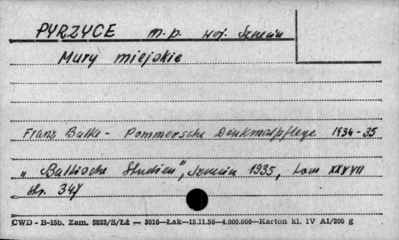 PYRZYCE m.p. woj. Szczecin
Mury miejskie
Franz Balke - Pommersche Denkmalpflege 1934-35
„Baltische Studien", Szczecin 1935, tom XXXVII
str. 347
CWD - B-15b. Zam. 5823/S/Łż — 2016—Łak—15.11.56—4.000.000—Karton kl. IV A1/200 g